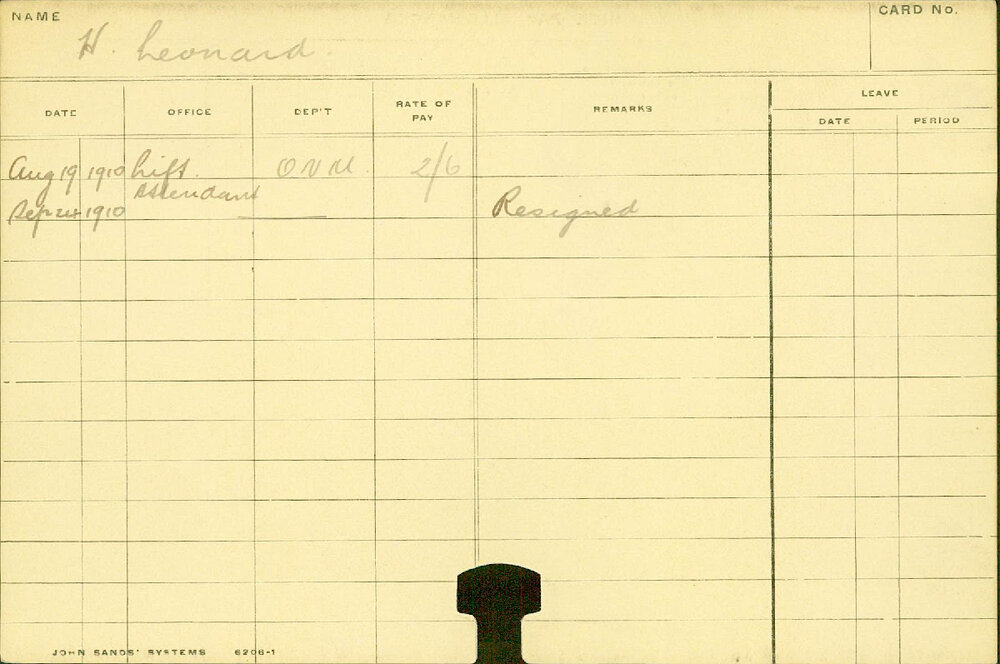 NAME
CARD No.
H. Leonard.
DATE OFFICE DEP'T RATE OF PAY REMARKS LEAVE
DATE PERIOD
Aug 19 1910 Lift. Attendant O V M. 2/6
Sep 24 1910 Resigned
JOHN SANDS' SYSTEMS 6206-1